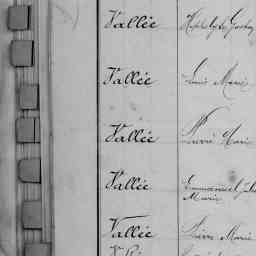 Vallée
Vallée Louis Marie
Vallée Pierre Marie
Vallée Emmanuel Jules
Marie
Vallée Pierre Marie